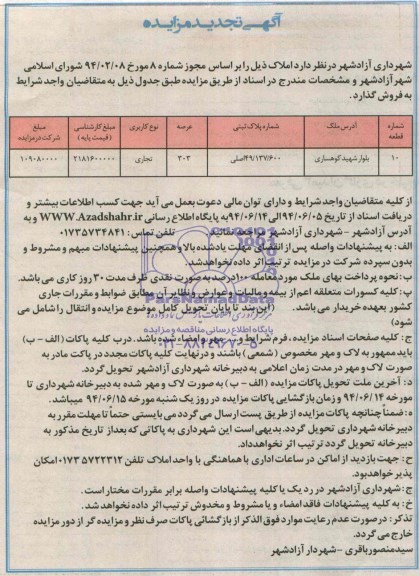 آگهی تجدید مزایده
شهرداری آزادشهر درنظر دارد املاک ذیل را بر اساس مجوز شماره ۸ مورخ ۹۴/۰۲/۰۸ شورای اسلامی
شهر آزادشهر و مشخصات مندرج در اسناد از طریق مزایده طبق جدول ذیل به متقاضیان واجد شرایط
به فروش گذارد.
شماره قطعه آدرس ملک شماره پلاک ثبتی عرصه نوع کاربری مبلغ کارشناسی (قیمت پایه) مبلغ شرکت در مزایده
۱۰ بلوار شهید کوهساری ۴۹/۱۳۷/۶۰۰ اصلی ۳۰۳ تجاری ۲۱۸۱۶۰۰۰۰۰ ۱۰۹۰۸۰۰۰۰
از کلیه متقاضیان واجد شرایط و دارای توان مالی دعوت بعمل می آید جهت کسب اطلاعات بیشتر و
دریافت اسناد از تاریخ ۹۴/۰۶/۰۵ الی ۹۴/۰۶/۱۴ به پایگاه اطلاع رسانی WWW.Azadshahr.ir و به
آدرس آزادشهر - شهرداری آزادشهر مراجعه نمایند. تلفن تماس: ۰۱۷۳۵۷۳۴۸۴۱
الف: به پیشنهادات واصله پس از انقضای مهلت یادشده بالا و همچنین پیشنهادات مبهم و مشروط و
بدون سپرده شرکت در مزایده ترتیب اثر داده نخواهد شد.
ب: نحوه پرداخت بهای ملک مورد معامله ۱۰۰درصد به صورت نقدی ظرف مدت ۳۰ روز کاری می باشد.
پ: کلیه کسورات متعلقه اعم از بیمه و مالیات و عوارض و نظایر آن مطابق ضوابط و مقررات جاری
کشور بعهده خریدار می باشد. (این بند تا پایان تحویل کامل موضوع مزایده و انتقال را شامل می
شود)
ج: کلیه صفحات اسناد مزایده، فرم شرایط و ... مهر و امضاء شده باشد. درب کلیه پاکات (الف - ب)
باید ممهور به لاک و مهر مخصوص (شمعی) باشند و درنهایت کلیه پاکات مجدد در پاکت مادر به
صورت لاک و مهر در مدت زمان اعلامی به دبیرخانه شهرداری آزادشهر تحویل گردد.
د: آخرین ملت تحویل پاکات مزایده (الف - ب) به صورت لاک و مهر شده به دبیرخانه شهرداری تا
مورخه ۹۴/۰۶/۱۴ و زمان بازگشایی پاکات مزایده در روز یک شنبه مورخه ۹۴/۰۶/۱۵ میباشد.
ه: ضمناً چنانچه پاکات مزایده از طریق پست ارسال می گردد می بایستی حتماً تا مهلت مقرر به
دبیرخانه شهرداری تحویل گردد. بدیهی است این شهرداری به پاکاتی که بعد از تاریخ مذکور به
دبیرخانه تحویل گردد ترتیب اثر نخواهد داد.
ح: جهت بازدید از اماکن در ساعات اداری با هماهنگی با واحد املاک تلفن ۰۱۷۳۵۷۲۲۳۱۲ امکان
پذیر خواهد بود.
چ: شهرداری آزادشهر در رد یک یا کلیه پیشنهادات واصله برابر مقررات مختار است.
خ: به کلیه پیشنهادات فاقد امضاء و یا مشروط و مخدوش ترتیب اثر داده نخواهد شد.
تذکر: در صورت عدم رعایت موارد فوق الذکر از بازگشائی پاکات صرف نظر و مزایده گر از دور مزایده
خارج می گردد.
سید منصور باقری - شهردار آزادشهر
ParsNamadData
پایگاه اطلاع رسانی مناقصه و مزایده